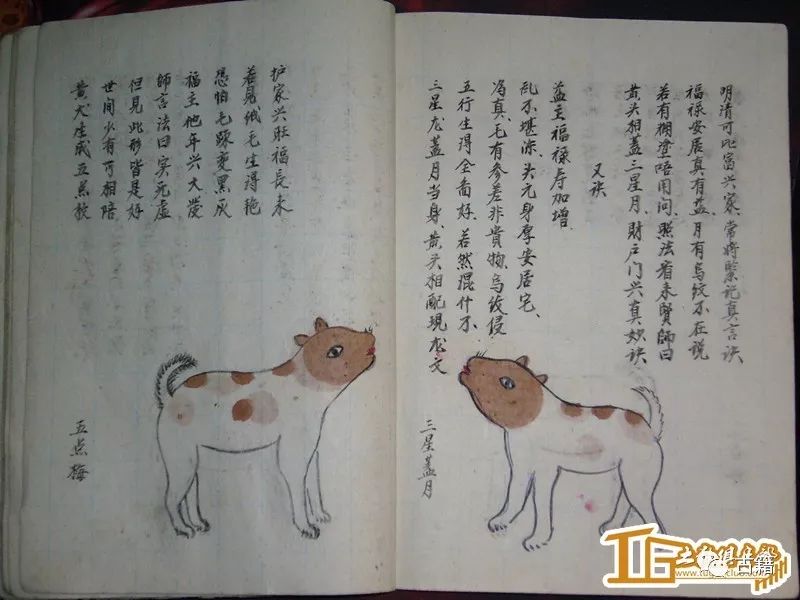 黄犬生成五点枚
世间少有可相陪
但見此形皆是好
師言法曰实元虚
福主他年兴大發
恐怕毛踩更黑灰
若見纸毛生得艳
护家兴旺福長来
五点梅
三星龙蓋月当身、黄头相配現龙文
五行生得全面好、若然混什不、
为真、毛有参差非貴物、乌纹侵
乱不堪涂、头元身厚安居宅、
益主福禄寿加增
又诀
黄头相蓋三星月、财户门兴真妙诀
若有糊塗陪用问、照法看来賢師曰
福禄安居真有益、月有乌纹不在说
明清可比富兴家、常将緊記真言诀
三星蓋月
古籍